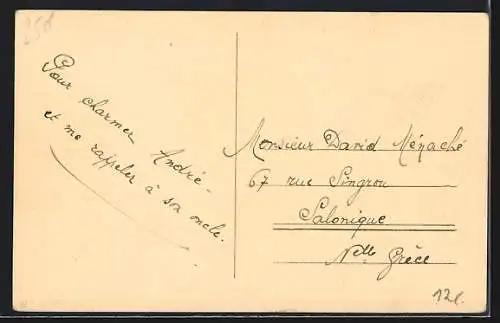 258
Pour charmer André -
et me rappeler à son oncle.
Monsieur David Ménaché
67 rue Singrou
Salonique
Nelle Grèce